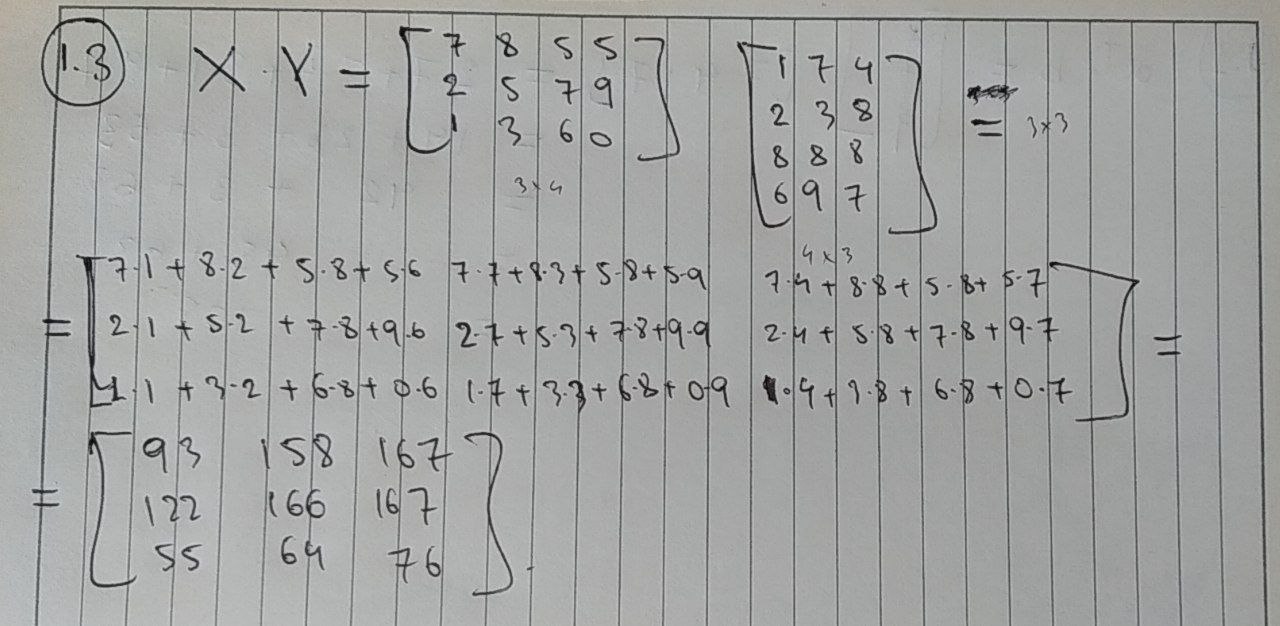 1.3 X · Y = [7 8 5 5 [1 7 4
2 5 7 9 2 3 8
1 3 6 0] 8 8 8
6 9 7] = 3×3
3×4 4×3
= [7·1 + 8·2 + 5·8 + 5·6 7·7 + 8·3 + 5·8 + 5·9 7·4 + 8·8 + 5·8 + 5·7
2·1 + 5·2 + 7·8 + 9·6 2·7 + 5·3 + 7·8 + 9·9 2·4 + 5·8 + 7·8 + 9·7
1·1 + 3·2 + 6·8 + 0·6 1·7 + 3·3 + 6·8 + 0·9 1·4 + 3·8 + 6·8 + 0·7] =
= [93 158 167
122 166 167
55 64 76].